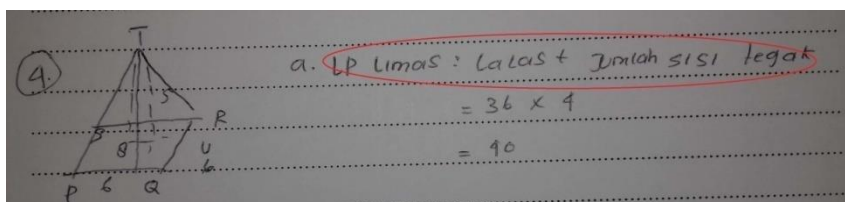 4.
T
S
R
S
8
U
6
P 6 Q
a. LP Limas : Lalas + Jumlah sisi tegak
= 36 × 4
= 40